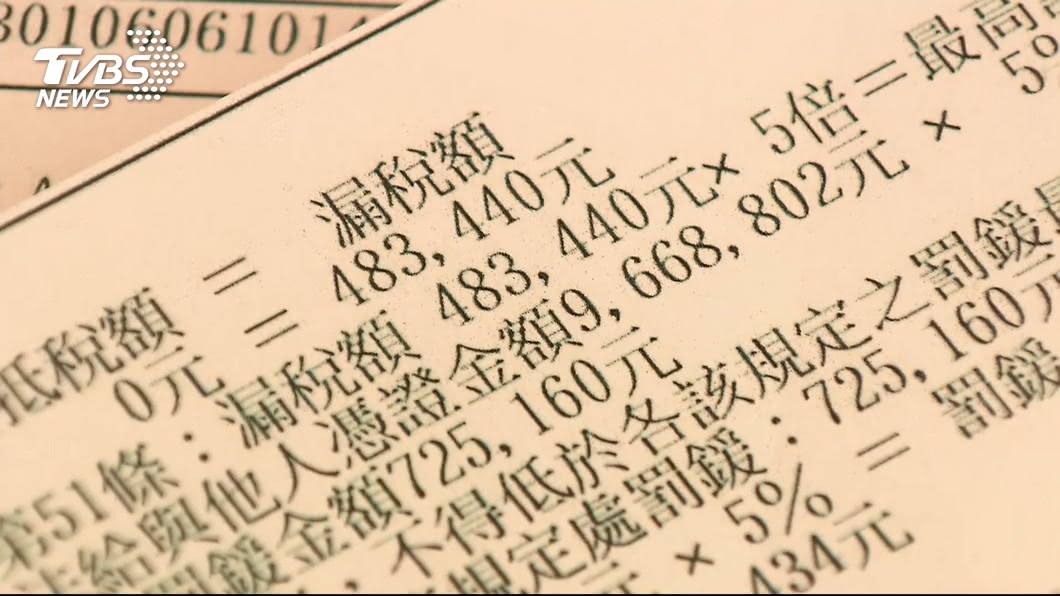 3010606101
TVBS
NEWS
漏稅額
抵稅額 =
483,440元
0元 =
第51條:漏稅額 483,440元× 5倍=最高
未給與他人憑證金額9,668,802元 × 5%
罰鍰金額725,160元
,不得低於各該規定之罰鍰
規定處罰鍰:725,160元
元 × 5% = 罰鍰
434元